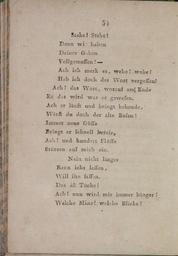 53
Stehe! Stehe!
Denn wir haben
Deiner Gaben
Vollgemessen! —
Ach ich merk es, wehe! wehe!
Hab ich doch das Wort vergessen!
Ach! das Wort, worauf am Ende
Er das wird was er gewesen.
Ach er läuft und bringt behende,
Wärst du doch der alte Besen!
Immer neue Güsse
Bringt er schnell herein,
Ach! und hundert Flüsse
Stürzen auf mich ein.
Nein nicht länger
Kann ichs lassen,
Will ihn fassen.
Das ist Tücke!
Ach! nun wird mir immer bänger!
Welche Miene! welche Blicke!